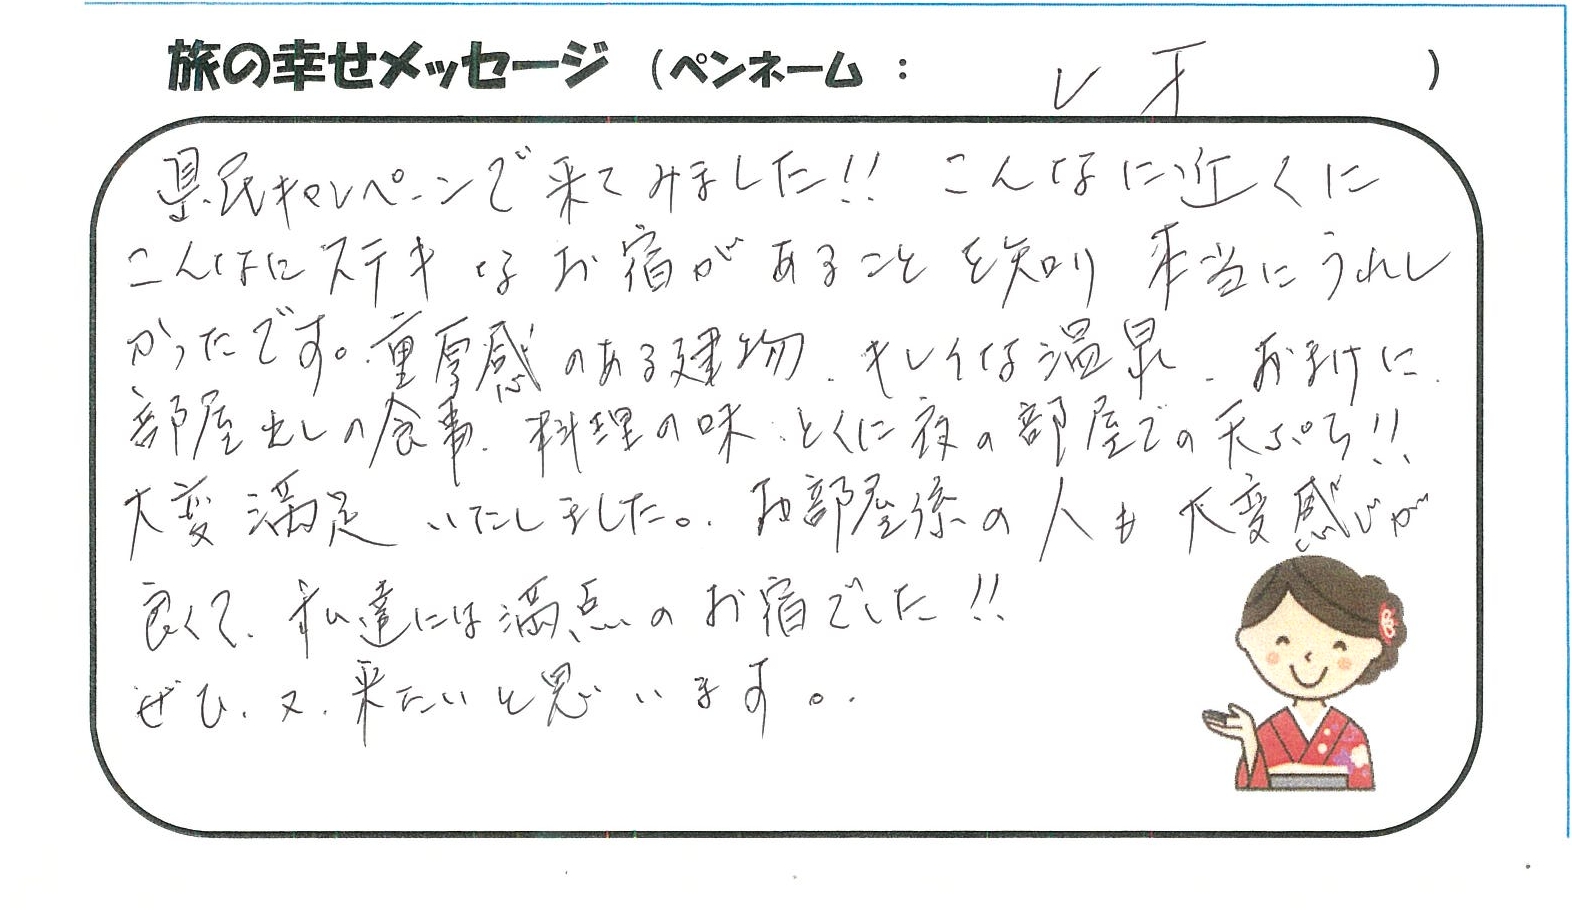 旅の幸せメッセージ (ペンネーム : レオ )
県民キャンペーンで来てみました!! こんなに近くに
こんなにステキなお宿があることを知り本当にうれし
かったです。重厚感のある建物、キレイな温泉、おまけに
部屋出しの食事、料理の味、とくに夜の部屋での天ぷら!!
大変満足いたしました。お部屋係の人も大変感じが
良くて、私達には満点のお宿でした!!
ぜひ、又、来たいと思います。